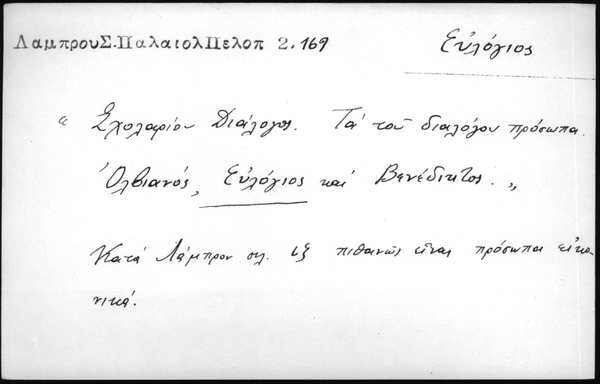 ΛαμπρουΣ.ΠαλαιολΠελοπ 2.169
Εὐλόγιος
“ Σχολαρίου Διάλογος. Τά τοῦ διαλόγου πρόσωπα.
Ὀλβιανός, Εὐλόγιος καί Βενέδικτος. „
Κατά Λάμπρον σελ. ιξ πιθανῶς εἶναι πρόσωπα εἰκο-
νικά.